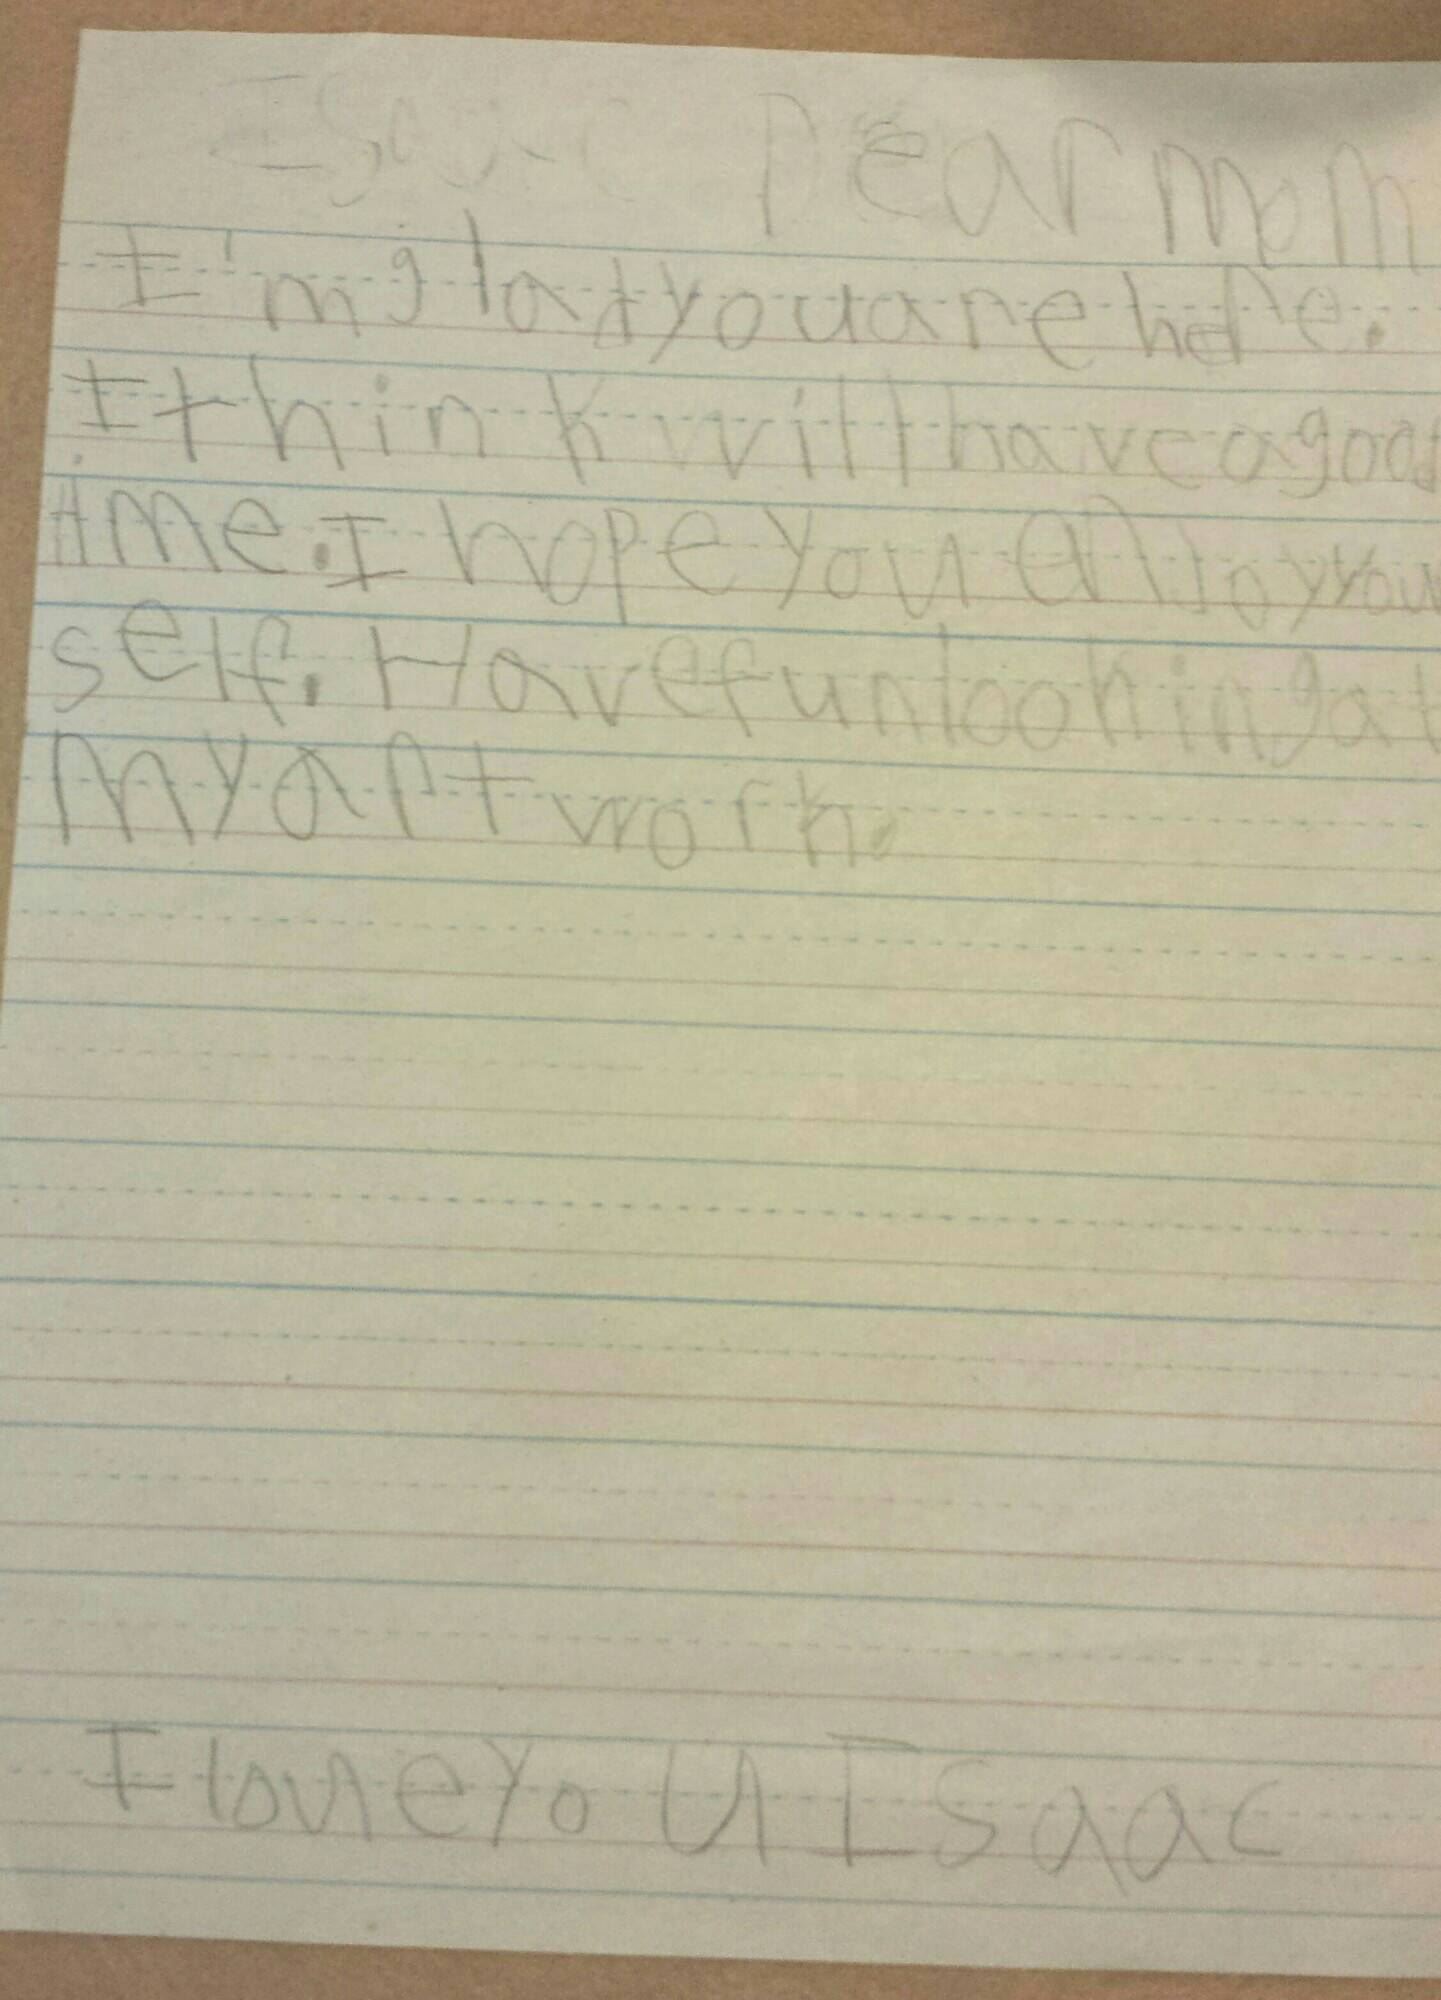 Isaac Dear mom
I'm glad you are here.
I think will have a good
time. I hope you enjoy you
self. Have fun looking at
my art work.
I love you Isaac